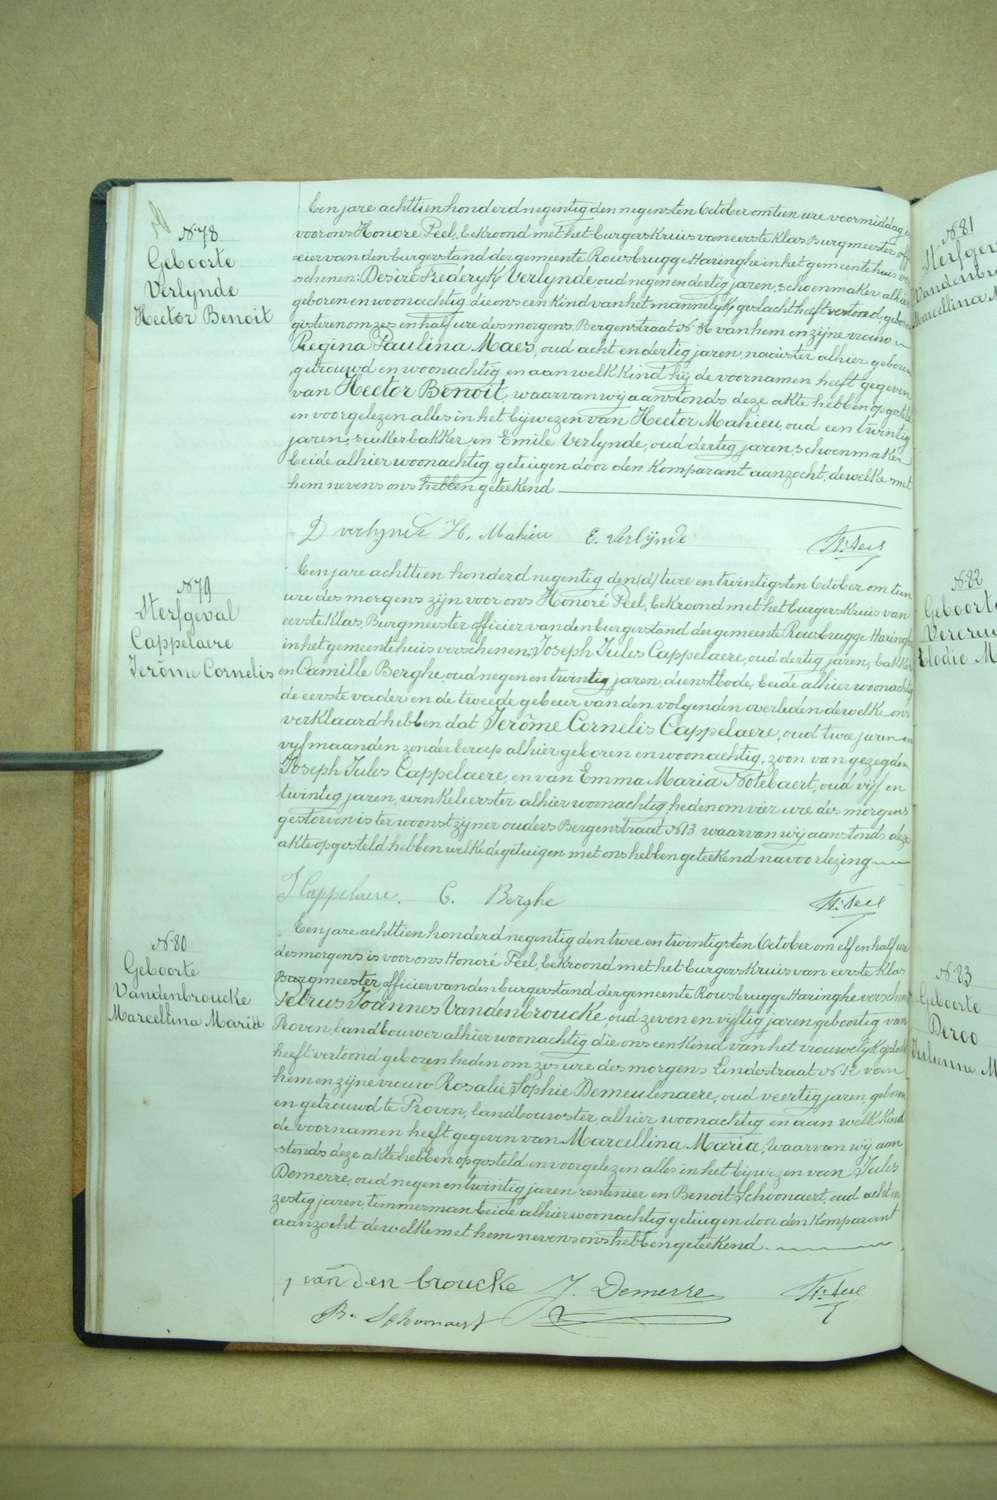 N.78
Geboorte
Verlynde
Hector Benoit
Een jare achttien honderd negentig den negensten October om tien ure voormiddag
voor ons Honoré Feel, bekroond met het burgerskruis van eerste klas Burgmeester offi
cier van den burgerstand der gemeente Rousbrugge Haringhe in het gemeentehuis ver
schenen: Desiré Frederyk Verlynde oud negen en dertig jaren, schoenmaker alhier
geboren en woonachtig die ons een kind van het mannelijk geslacht heeft vertoond, geboren
gisteren om zes en half ure des morgens Bergenstraat N. 36 van hem en zijne vrouw
Regina Paulina Maes, oud acht en dertig jaren, naaister alhier geboren
getrouwd en woonachtig en aan welk kind hij de voornamen heeft gegeven
van Hector Benoit, waarvan wij aanstonds deze akte hebben opgesteld
en voorgelezen alles in het bijwezen van Hector Mahieu, oud een twintig
jaren, suikerbakker en Emile Verlynde, oud dertig jaren, schoenmaker
beide alhier woonachtig getuigen door den komparant aanzocht, dewelke met
hem nevens ons hebben geteekend
D Verlynde H. Mahieu E. Verlijnde Hr. Feel
N.79
Sterfgeval
Cappelaere
Jerôme Cornelis
Een jare achttien honderd negentig den (d) twee en twintigsten October om tien
ure des morgens zijn voor ons Honoré Feel, bekroond met het burgerskruis van
eerste klas, Burgmeester officier van den burgerstand der gemeente Rousbrugge Haringhe
in het gemeentehuis verschenen, Joseph Jules Cappelaere, oud dertig jaren, bakker
en Camille Berghe, oud negen en twintig jaren, dienstbode, beide alhier woonachtig
de eerste vader en de tweede gebuer van den volgenden overleden dewelke ons
verklaard hebben dat Jerôme Cornelis Cappelaere, oud twee jaren en
vijf maanden zonder beroep alhier geboren en woonachtig, zoon van gezegden
Joseph Jules Cappelaere, en van Emma Maria Notebaert, oud vijf en
twintig jaren, winkelierster alhier woonachtig, heden om vier ure des morgens
gestorven is ter woonst zijner ouders Bergenstraat N. 13 waarvan wij aanstonds deze
akte opgesteld hebben welke de getuigen met ons hebben geteekend na voorlezing
J Cappelaere. C. Berghe Hr. Feel
N.80
Geboorte
Vandenbroucke
Marcellina Maria
Een jare achttien honderd negentig den twee en twintigsten October om elf en half ure
des morgens is voor ons Honoré Feel, bekroond met het burgerskruis van eerste klas
Burgmeester, officier van den burgerstand der gemeente Rousbrugge Haringhe verschenen
Petrus Joannes Vandenbroucke, oud zeven en vijftig jaren geboortig van
Proven, landbouwer alhier woonachtig die ons een kind van het vrouwelijk geslacht
heeft vertoond geboren heden om zes ure des morgens Lindestraat N. 12 van
hem en zijne vrouw Rosalie Sophie Demeulenaere, oud veertig jaren, geboren
en getrouwd te Proven, landbouwster, alhier woonachtig en aan welk kind
de voornamen heeft gegeven van Marcellina Maria, waarvan wij aan
stonds deze akte hebben opgesteld en voorgelezen alles in het bijwezen van Jules
Demerre, oud negen en twintig jaren rentenier en Benoit Schoonaert, oud acht en
zestig jaren timmerman beide alhier woonachtig getuigen door den komparant
aanzocht dewelke met hem nevens ons hebben geteekend
van den broucke J. Demerre Hr. Feel
B. Schoonaert
N.81
Sterfgev
Vandenbro
Marcellina M
N.82
Geboorte
Vercruy
Elodie M
N.83
Geboorte
Deroo
Julienne M